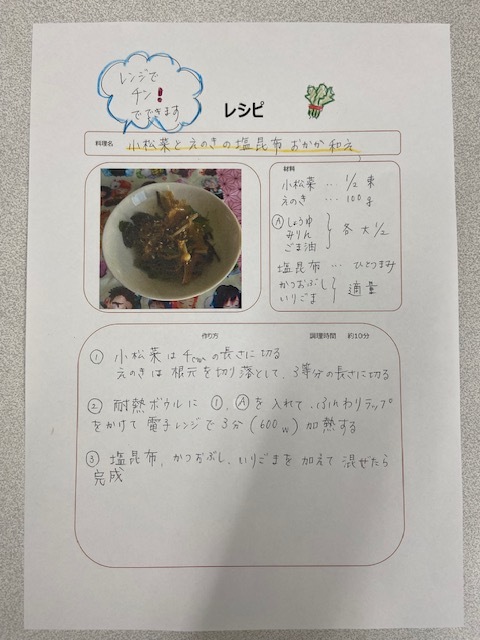 レンジで
チン!
でできます
レシピ
料理名 小松菜とえのきの塩昆布おかか和え
材料
小松菜 … 1/2 束
えのき … 100g
Ⓐ しょうゆ
みりん
ごま油
各大1/2
塩昆布 … ひとつまみ
かつおぶし
いりごま
適量
作り方 調理時間 約10分
① 小松菜は4cmの長さに切る
えのきは根元を切り落として、3等分の長さに切る
② 耐熱ボウルに①、Ⓐを入れて、ふんわりラップ
をかけて電子レンジで3分(600w)加熱する
③ 塩昆布、かつおぶし、いりごまを加えて混ぜたら
完成